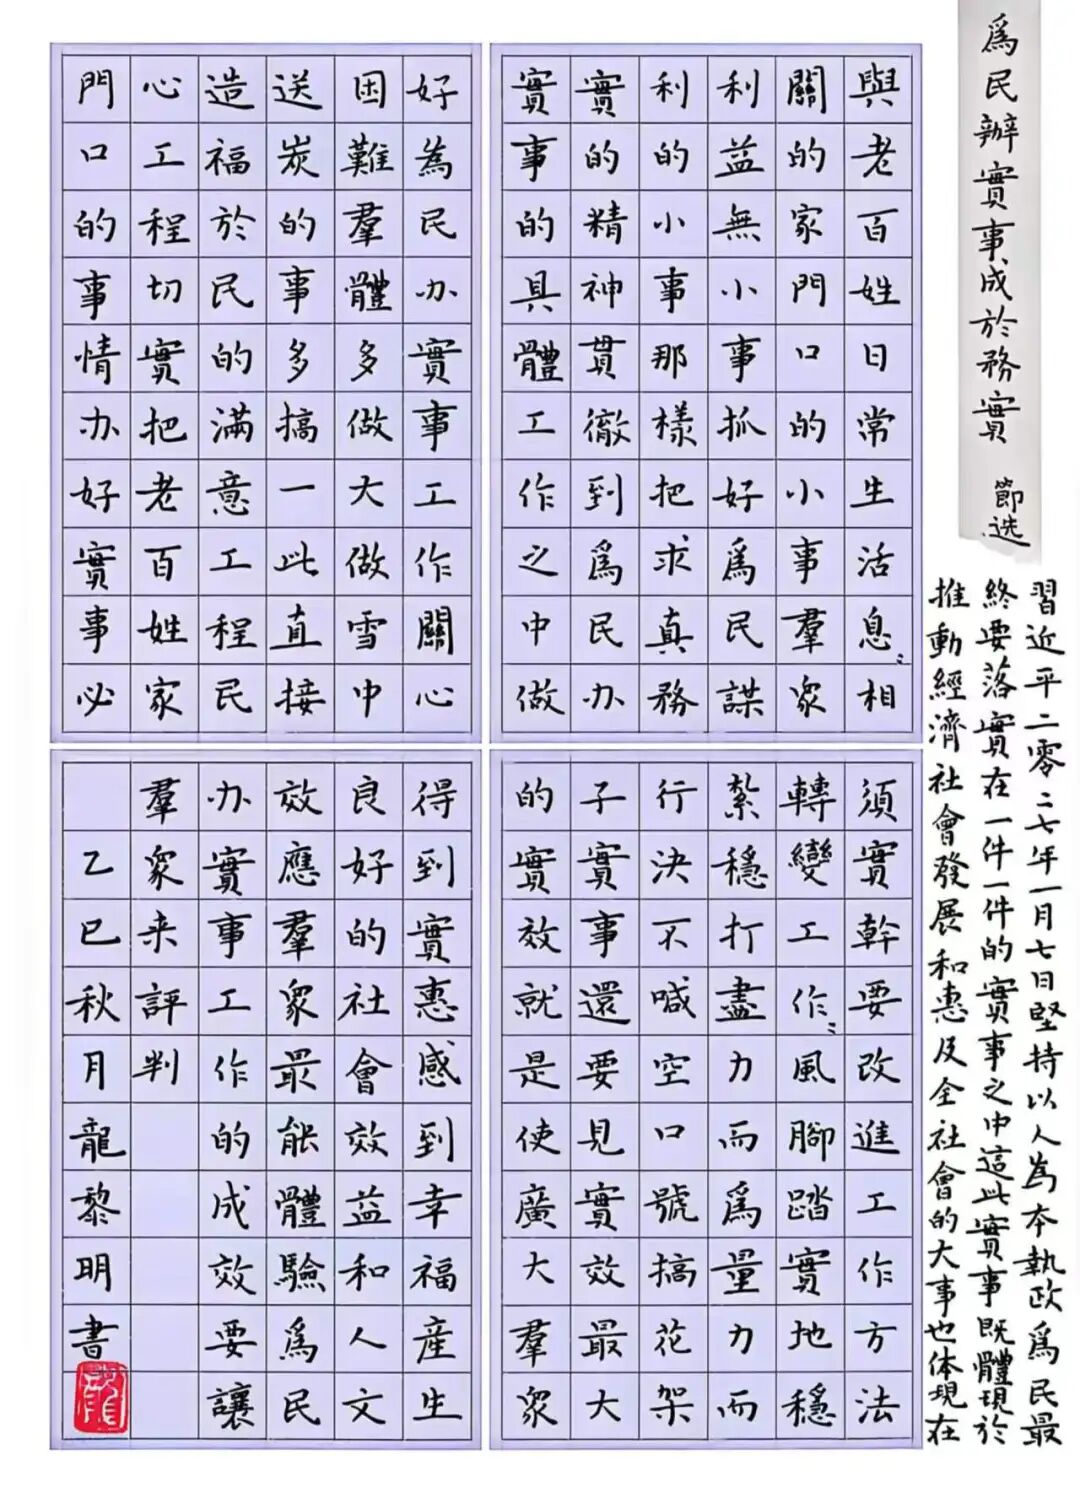 爲民辦實事成於務實
節选
習近平二零二七年一月七日堅持以人為本執政爲民最
終要落實在一件一件的實事之中這此實事既體現於
推動經濟社會發展和惠及全社會的大事也体現在
與老百姓日常生活息息相
關的家門口的小事羣眾
利益無小事抓好爲民謀
利的小事那樣把求真務
實的精神貫徹到爲民办
實事的具體工作之中做
好為民办實事工作關心
困難羣體多做大做雪中
送炭的事多搞一此直接
造福於民的滿意工程民
心工程切實把老百姓家
門口的事情办好實事必
須實幹要改進工作方法
轉變工作作風腳踏實地穩
紮穩打盡力而爲量力而
行決不喊空口號搞花架
子實事還要見實效最大
的實效就是使廣大羣眾
得到實惠感到幸福産生
良好的社會效益和人文
效應羣眾最能體驗爲民
办實事工作的成效要讓
羣眾来評判
乙巳秋月龍黎明書